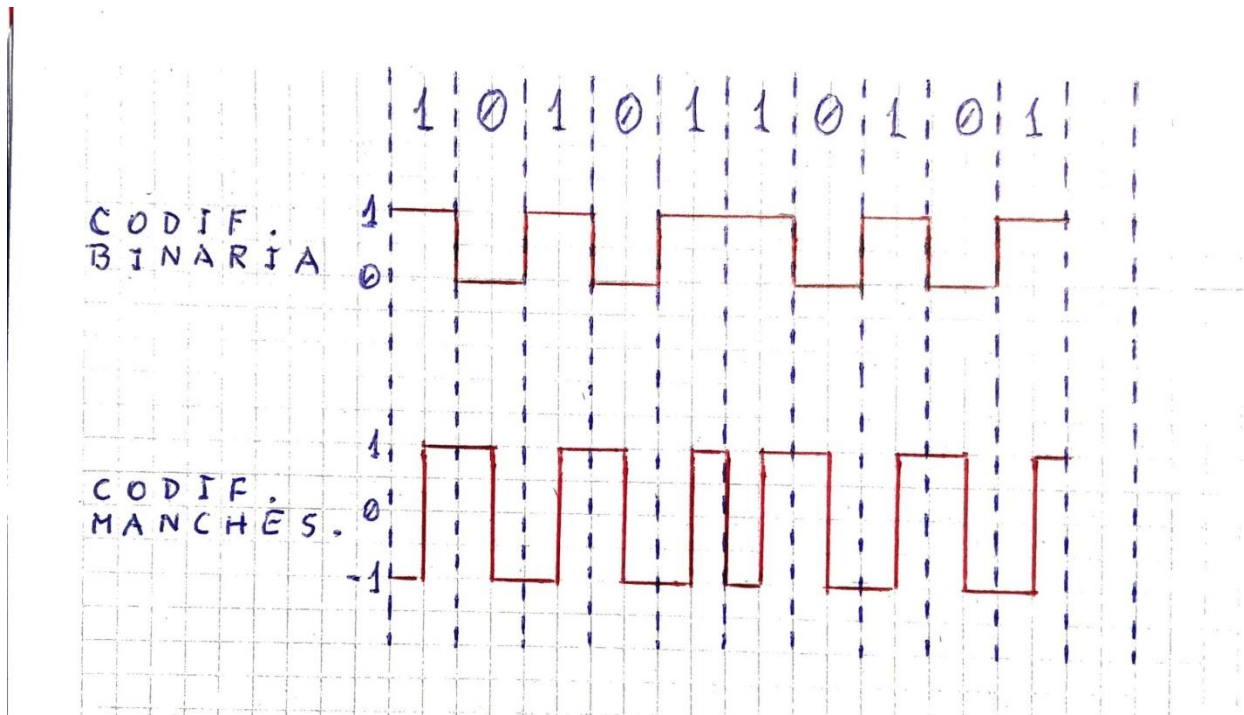 1 0 1 0 1 1 0 1 0 1
CODIF.
BINARIA
1
0
CODIF.
MANCHES.
1
0
-1